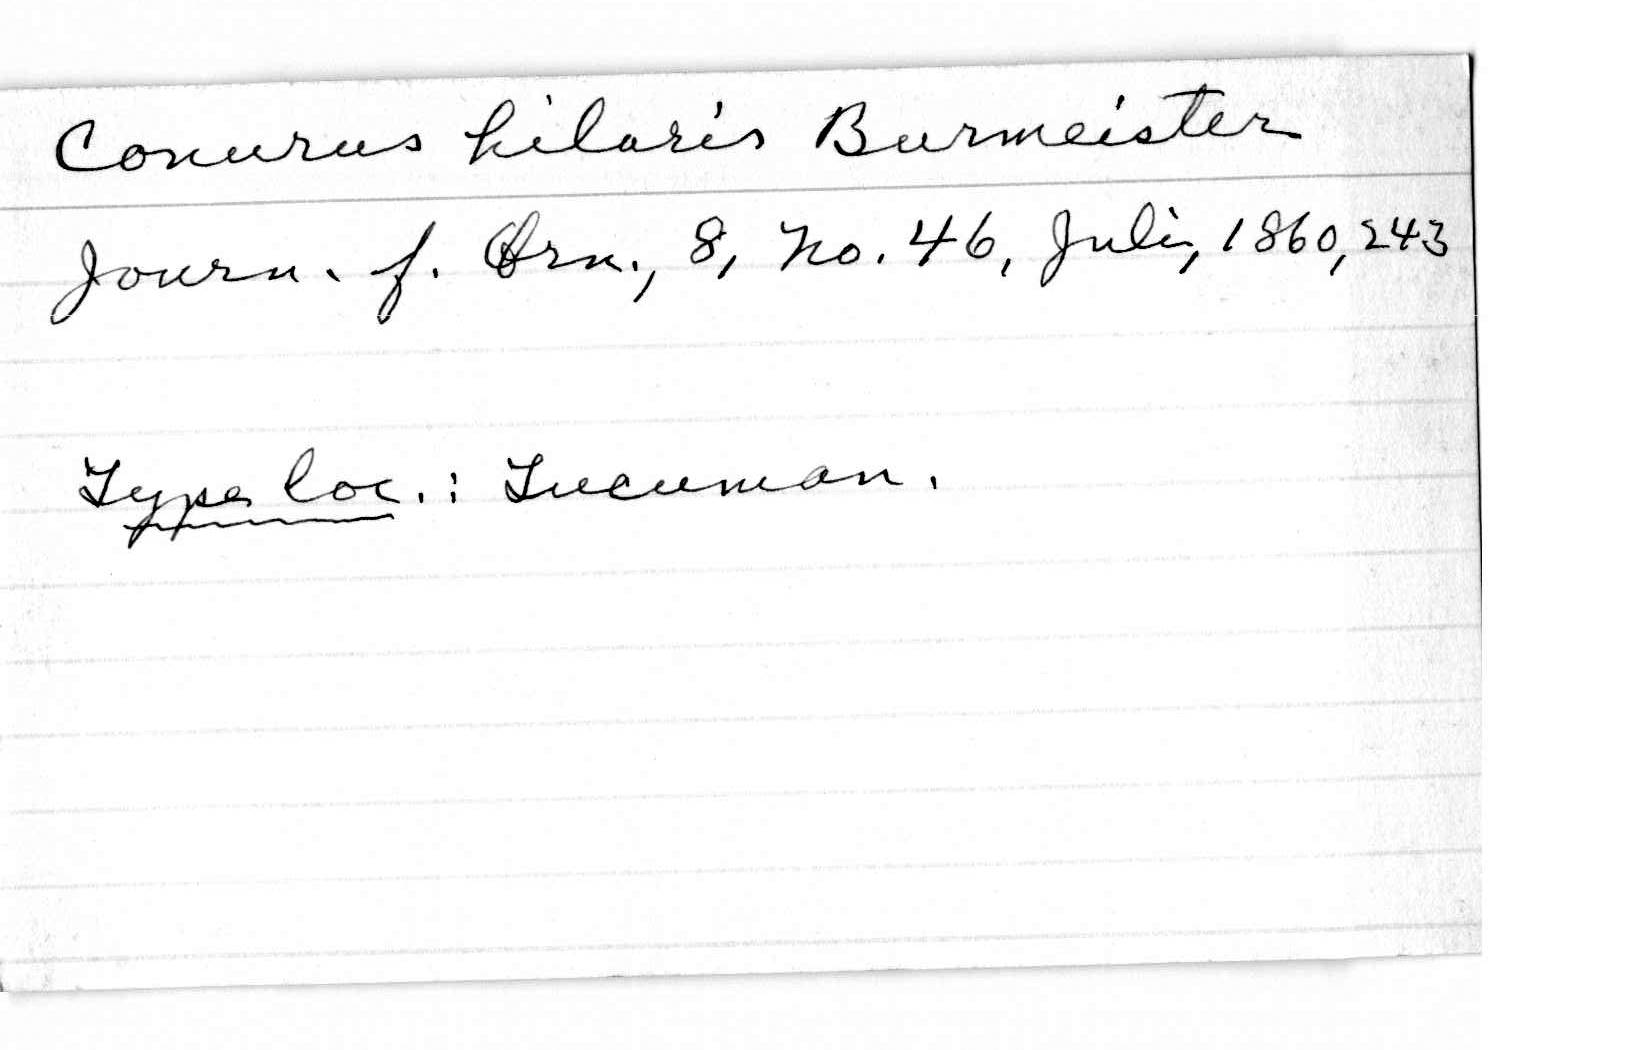 Conurus hilaris Burmeister
Journ. f. Orn., 8, No. 46, Juli, 1860, 243
Type loc.: Tucuman.